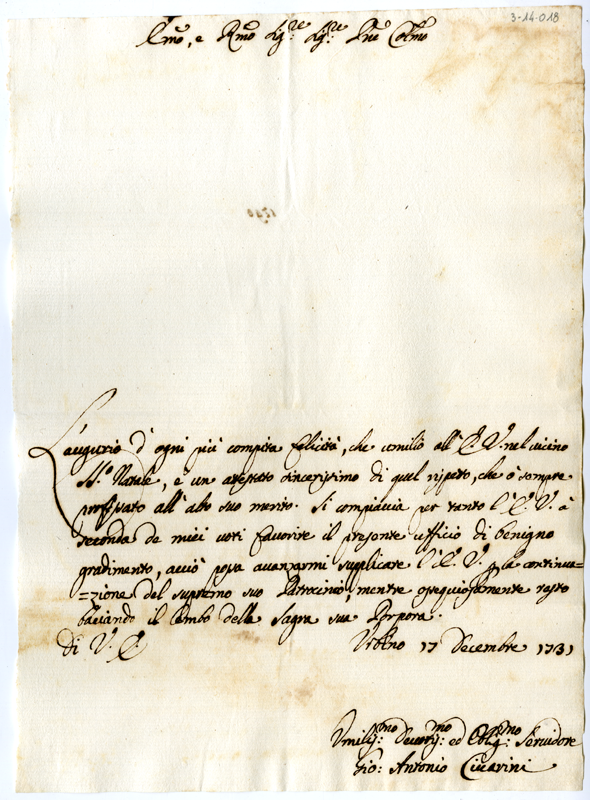 3-14-018
Emo, e Rmo Sig:re Sig:re Pne Colmo
1740
L'augurio d'ogni più compita felicità, che umilio all'E. V. nel vicino
SS.o Natale, è un attestato sincerissimo di quel rispetto, che ò sempre
professato all'alto suo merito. Si compiaccia per tanto l'E. V. à
seconda de miei voti favorire il presente ufficio di benigno
gradimento, acciò possa avanzarmi supplicare l'E. V. p la continua=
=zione del supremo suo Patrocinio, mentre ossequiosamente resto
baciando il lembo della Sagra sua Porpora.
Di V. E.
Urbino 17 Decembre 1731
Umiliss:mo Devotiss:mo ed Oblig:mo Servidore
Gio: Antonio Ciccarini